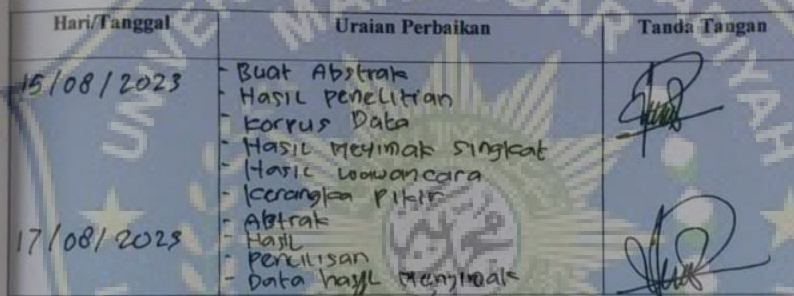 Hari/Tanggal Uraian Perbaikan Tanda Tangan
15/08/2023 - Buat Abstrak
- Hasil penelitian
- Korpus Data
- Hasil Meyimak singkat
- Hasil wawancara
- Kerangka Pikir
- Abtrak
17/08/2023 - Hasil
- penulisan
- Data hasil menyimak